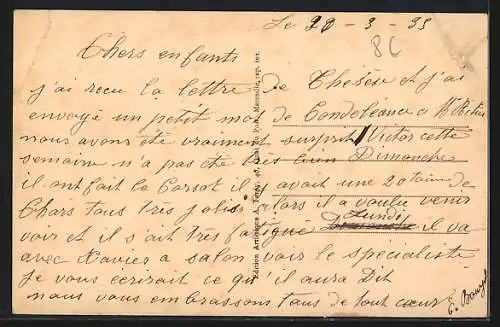 Le 20 - 3 - 35
8C
Chers enfants
j'ai recu la lettre de Thésèse et j'ai
envoyé un petit mot de Condoléance a Mr
nous avons été vraiment surprit Victor cette
semaine n'a pas été très bien Dimanche
il ont fait la Corsot il y avait une 20taine de
Chars tous très jolis alors il a voulu venir
voir et il s'ait très fatigué Lundi il va
avec Xavier a salon voir le spécialiste
Je vous écrirait ce qu'il aura Dit
nous vous embrassons tous de tout cœur